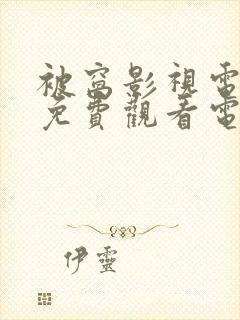 被窩影視電
免費觀看電
伊靈